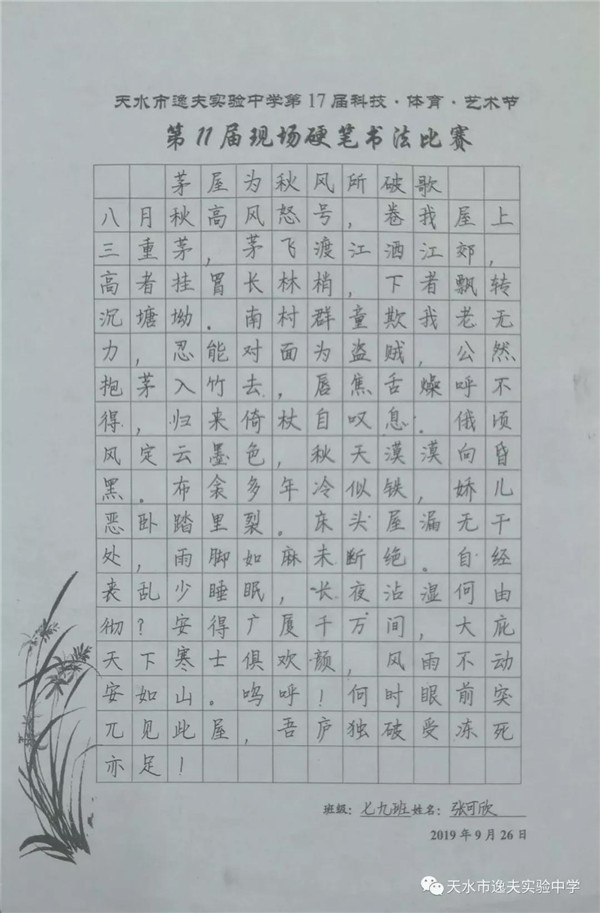 天水市逸夫实验中学第17届科技·体育·艺术节
第11届现场硬笔书法比赛
茅屋为秋风所破歌
八月秋高风怒号，卷我屋上
三重茅，茅飞渡江洒江郊，
高者挂罥长林梢，下者飘转
沉塘坳。南村群童欺我老无
力，忍能对面为盗贼，公然
抱茅入竹去，唇焦舌燥呼不
得，归来倚杖自叹息。俄顷
风定云墨色，秋天漠漠向昏
黑。布衾多年冷似铁，娇儿
恶卧踏里裂。床头屋漏无干
处，雨脚如麻未断绝。自经
丧乱少睡眠，长夜沾湿何由
彻？安得广厦千万间，大庇
天下寒士俱欢颜，风雨不动
安如山。呜呼！何时眼前突
兀见此屋，吾庐独破受冻死
亦足！
班级：七九班 姓名：张可欣
2019年9月26日
天水市逸夫实验中学